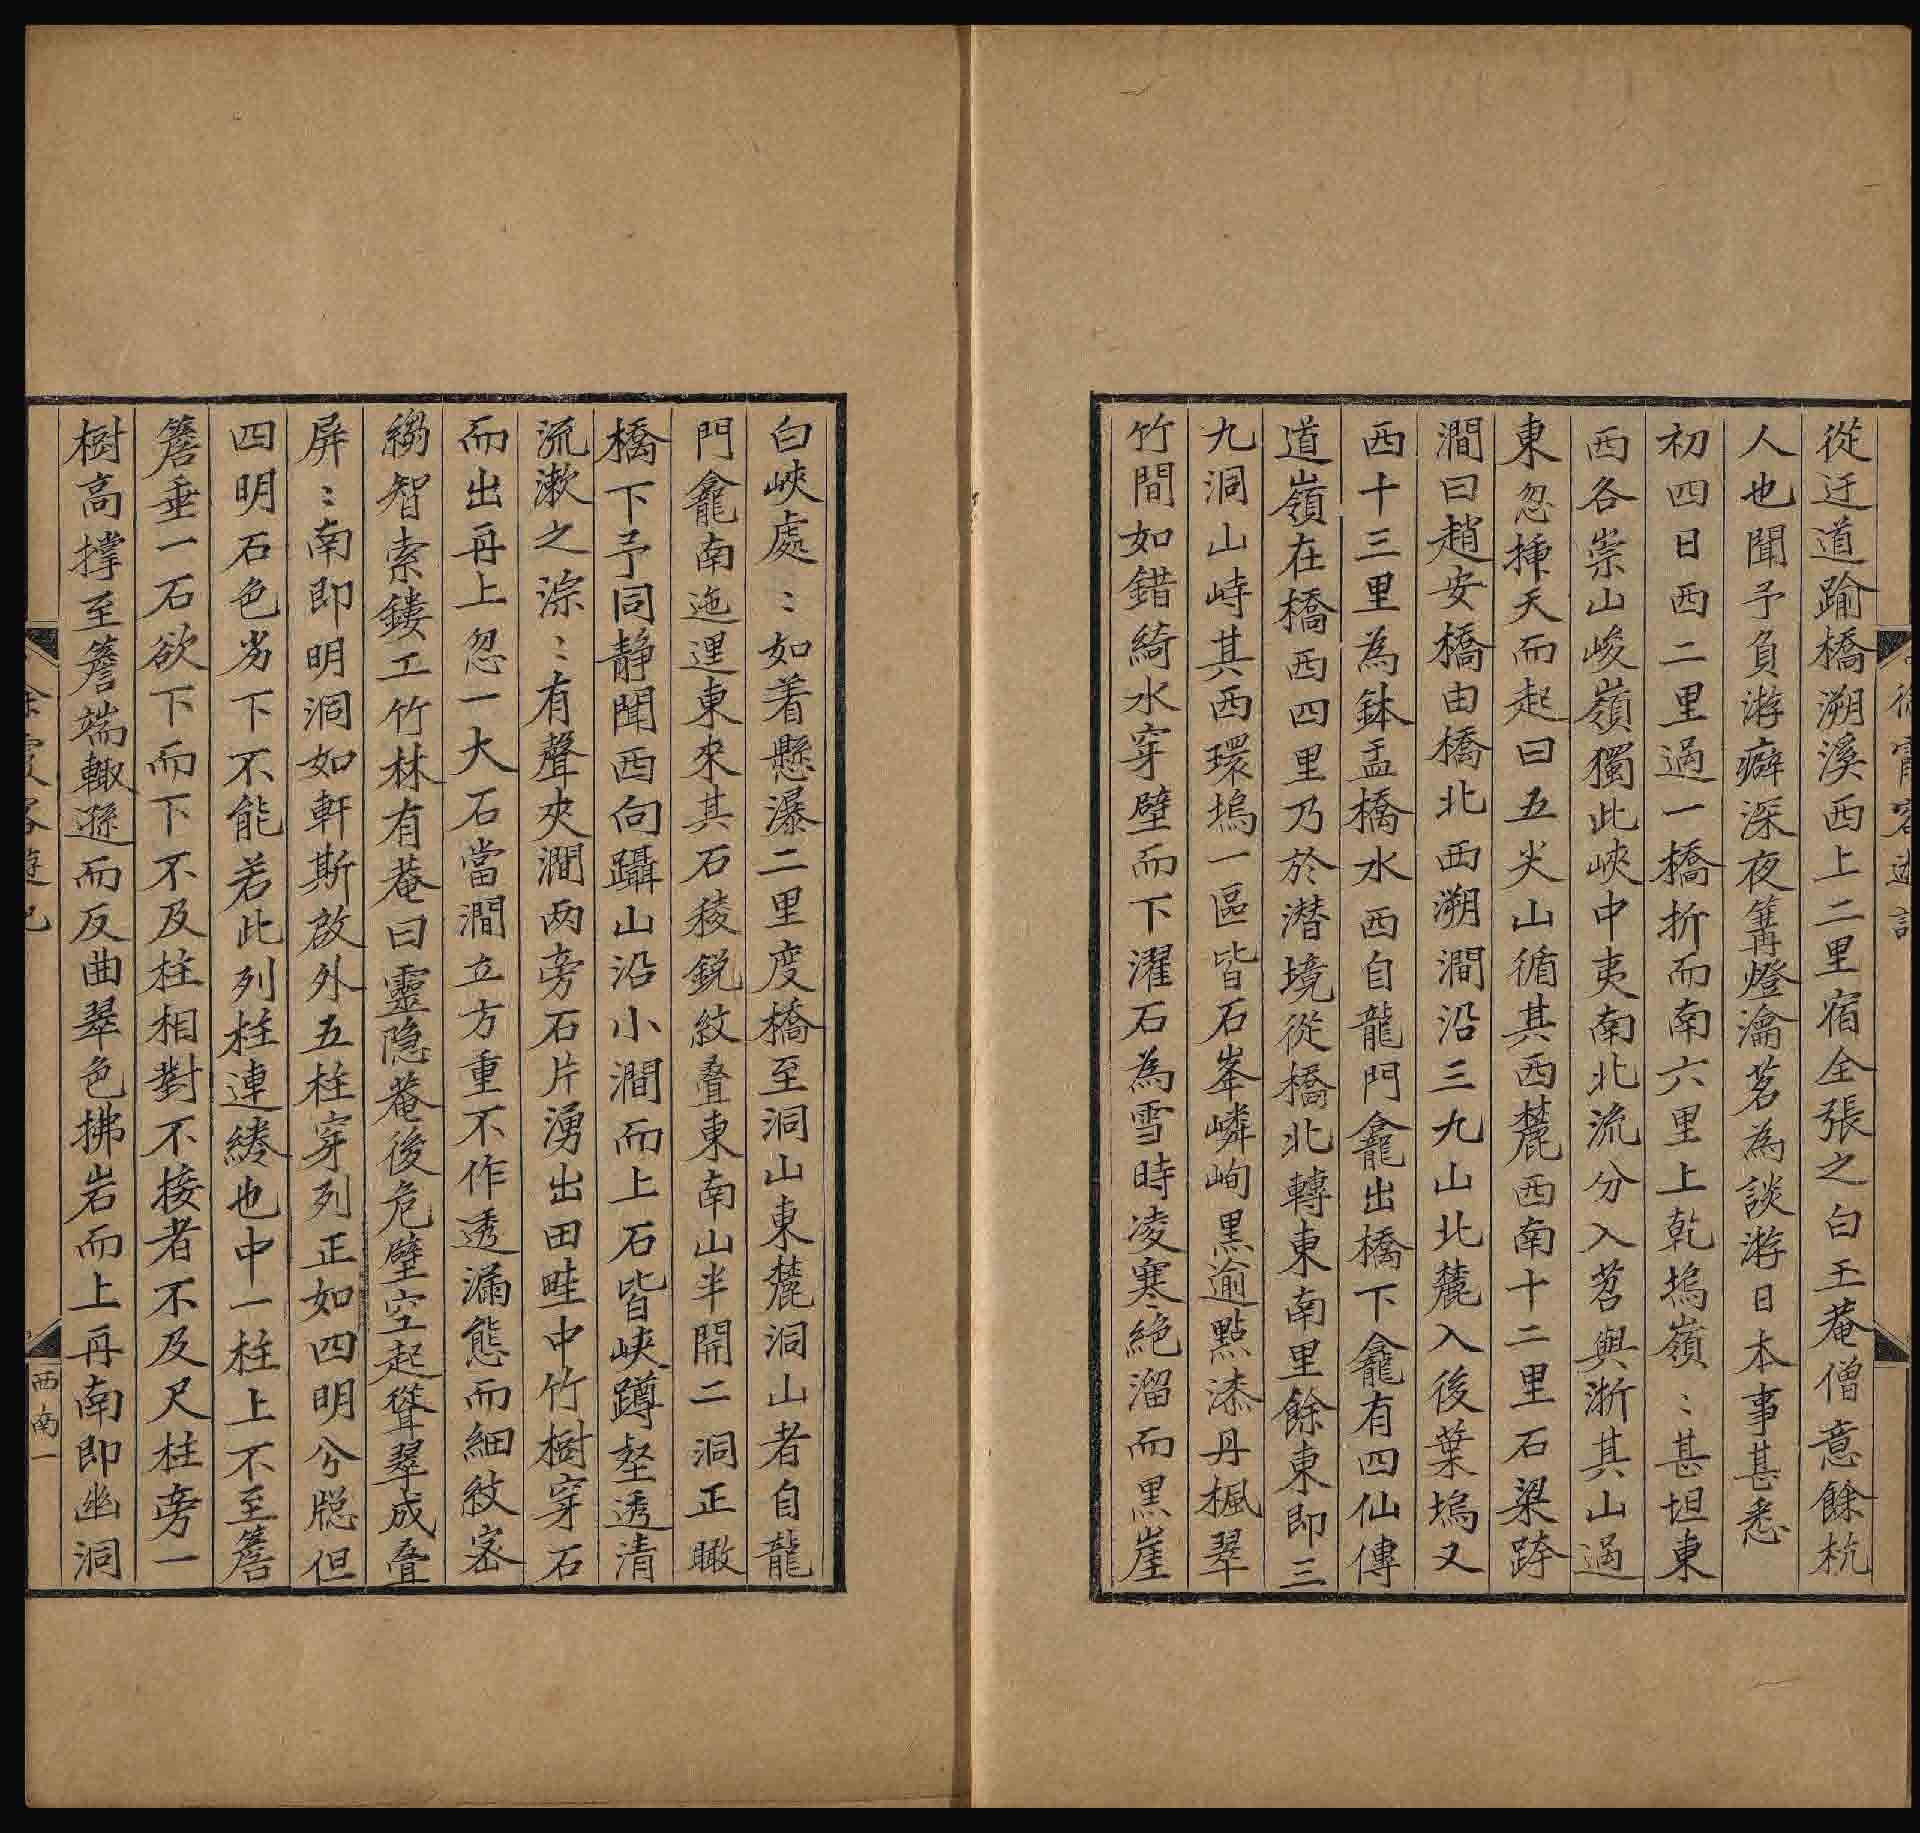 徐霞客遊記
從迂道踰橋溯溪西上二里宿全張之白玉菴僧意餘杭
人也聞予負游癖深夜篝燈瀹茗為談游日本事甚悉
初四日西二里過一橋折而南六里上乾塢嶺〻甚坦東
西各崇山峻嶺獨此峽中夷南北流分入苕與浙其山過
東忽挿天而起曰五尖山循其西麓西南十二里石梁跨
澗曰趙安橋由橋北西溯澗沿三九山北麓入後葉塢又
西十三里為鉢盂橋水西自龍門龕出橋下龕有四仙傳
道嶺在橋西四里乃於潜境從橋北轉東南里餘東即三
九洞山峙其西環塢一區皆石峯嶙峋黒逾點漆丹楓翠
竹間如錯綺水穿壁而下濯石為雪時凌寒絶溜而黒崖
白峽處〻如着懸瀑二里度橋至洞山東麓洞山者自龍
門龕南迤逦東來其石稜鋭紋叠東南山半開二洞正瞰
橋下予同静聞西向躡山沿小澗而上石皆峽蹲壑透清
流漱之淙〻有聲夾澗两旁石片湧出田畦中竹樹穿石
而出再上忽一大石當澗立方重不作透漏態而細紋密
縐智索鏤工竹林有菴曰靈隐菴後危壁空起聳翠成叠
屏〻南即明洞如軒斯啟外五柱穿列正如四明兮牎但
四明石色劣下不能若此列柱連綣也中一柱上不至簷
簷垂一石欲下而下不及柱相對不接者不及尺柱旁一
樹高撐至簷端輙遜而反曲翠色拂岩而上再南即幽洞
徐霞客遊記
西南一